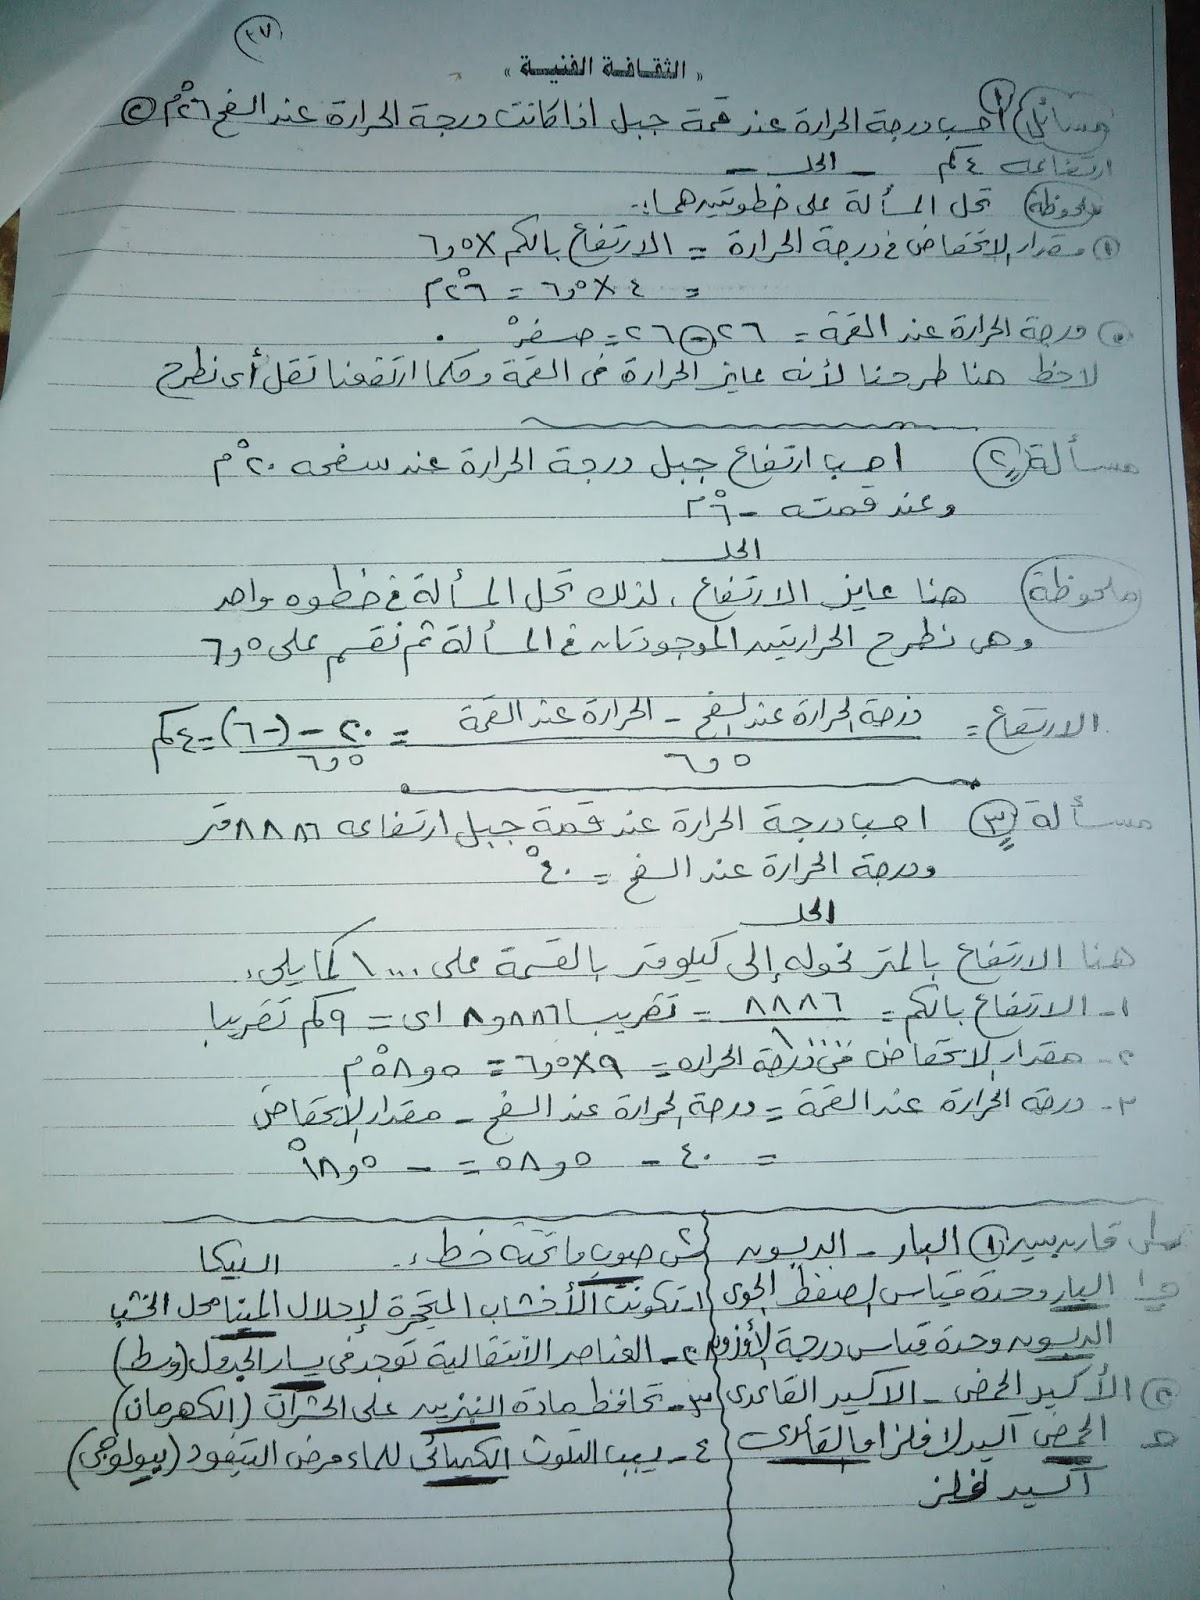 ٢٧
« الثقافة الفنيـــة »
مسائل ١ احسب درجة الحرارة عند قمة جبل اذا كانت درجة الحرارة عند السفح ٢٦°م
ارتفاعه ٤ كم – الحل –
ملحوظة تحل المسألة على خطوتين هما:-
١ مقدار الانخفاض فى درجة الحرارة = الارتفاع بالكم × ٦,٥
= ٤ × ٦,٥ = ٢٦°م
٢ درجة الحرارة عند القمة = ٢٦ – ٢٦ = صفر°
لاحظ هنا طرحنا لأنه عايز الحرارة فى القمة وكلما ارتفعنا تقل أى نطرح
مسألة ٢ احسب ارتفاع جبل درجة الحرارة عند سفحه ٢٠°م
وعند قمته -٦°م
الحل
ملحوظة هنا عايز الارتفاع، لذلك تحل المسألة فى خطوه واحد
وهى نطرح الحرارتين الموجودتان فى المسألة ثم نقسم على ٦,٥
الارتفاع = درجة الحرارة عند السفح – الحرارة عند القمة / ٦,٥ = ٢٠ – (-٦) / ٦,٥ = ٤ كم
مسألة ٣ احسب درجة الحرارة عند قمة جبل ارتفاعه ٨٨٨٦ متر
ودرجة الحرارة عند السفح = ٤٠°
الحل
هنا الارتفاع بالمتر نحوله إلى كيلو متر بالقسمة على ١٠٠٠ كما يلى:
١- الارتفاع بالكم = ٨٨٨٦ / ١٠٠٠ = تقريبا ٨,٨٨٦ اى = ٩ كم تقريبا
٢- مقدار الانخفاض فى درجة الحراره = ٩ × ٦,٥ = ٥٨,٥°م
٣- درجة الحرارة عند القمة = درجة الحرارة عند السفح – مقدار الانخفاض
= ٤٠ – ٥٨,٥ = – ١٨,٥°
قارن بين ١ البار – الدبسون
البار وحدة قياس الضغط الجوى
الدبسون وحدة قياس درجة الأوزون
٢ الأكسيد الحمضى – الاكسيد القاعدى
الحمضى أكسيد لا فلز اما القاعدى
أكسيد لفلز
صوب ما تحته خط:. السيكا
١- تكونت الأخشاب المتحجرة لإحلال المينا محل الخشب
٢- العناصر الانتقالية توجد فى يسار الجدول (وسط)
٣- تحافظ مادة البنزين على الحشرات (الكهرمان)
٤- يسبب التلوث الكيميائى للماء مرض التيفود (بيولوجى)